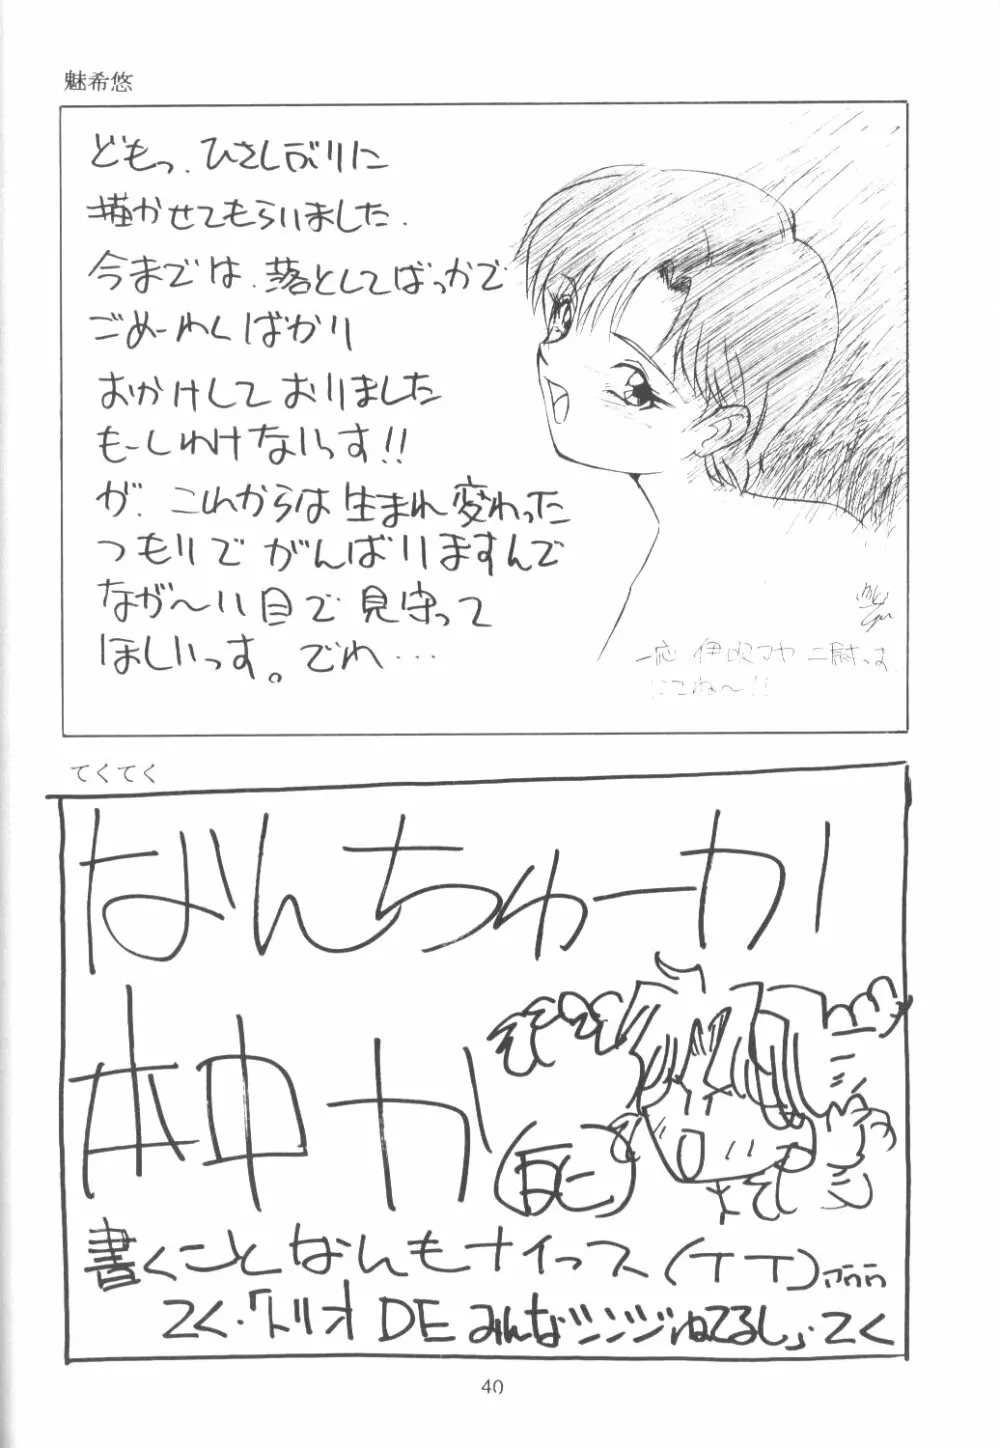 魅希悠
どもっ.ひさしぶりに
描かせてもらいました.
今までは.落としてばっかで
ごめーわくばかり
おかけしておりました
もーしわけないっす!!
が.これからは生まれ変わった
つもりでがんばりますんで
なが〜い目で見守って
ほしいっす。でわ…
一応 伊吹マヤ 二尉っす
にこね〜!!
てくてく
なんちゅーか
本中か
(仮)
書くことなんもナイっス(TT)
てく.「トリオDEみんなシンジねてるし」.てく
40